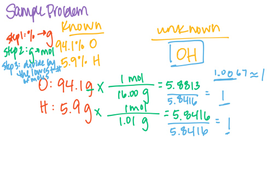 Sample Problem
Known
unknown
step 1: % → g
94.1% O
step 2: g → mol
5.9% H
step 3: divide by the lowest # of moles
OH
1.0067 ≈ 1
O: 94.1g × 1 mol / 16.00 g = 5.8813 / 5.8416 = 1
H: 5.9g × 1 mol / 1.01 g = 5.8416 / 5.8416 = 1